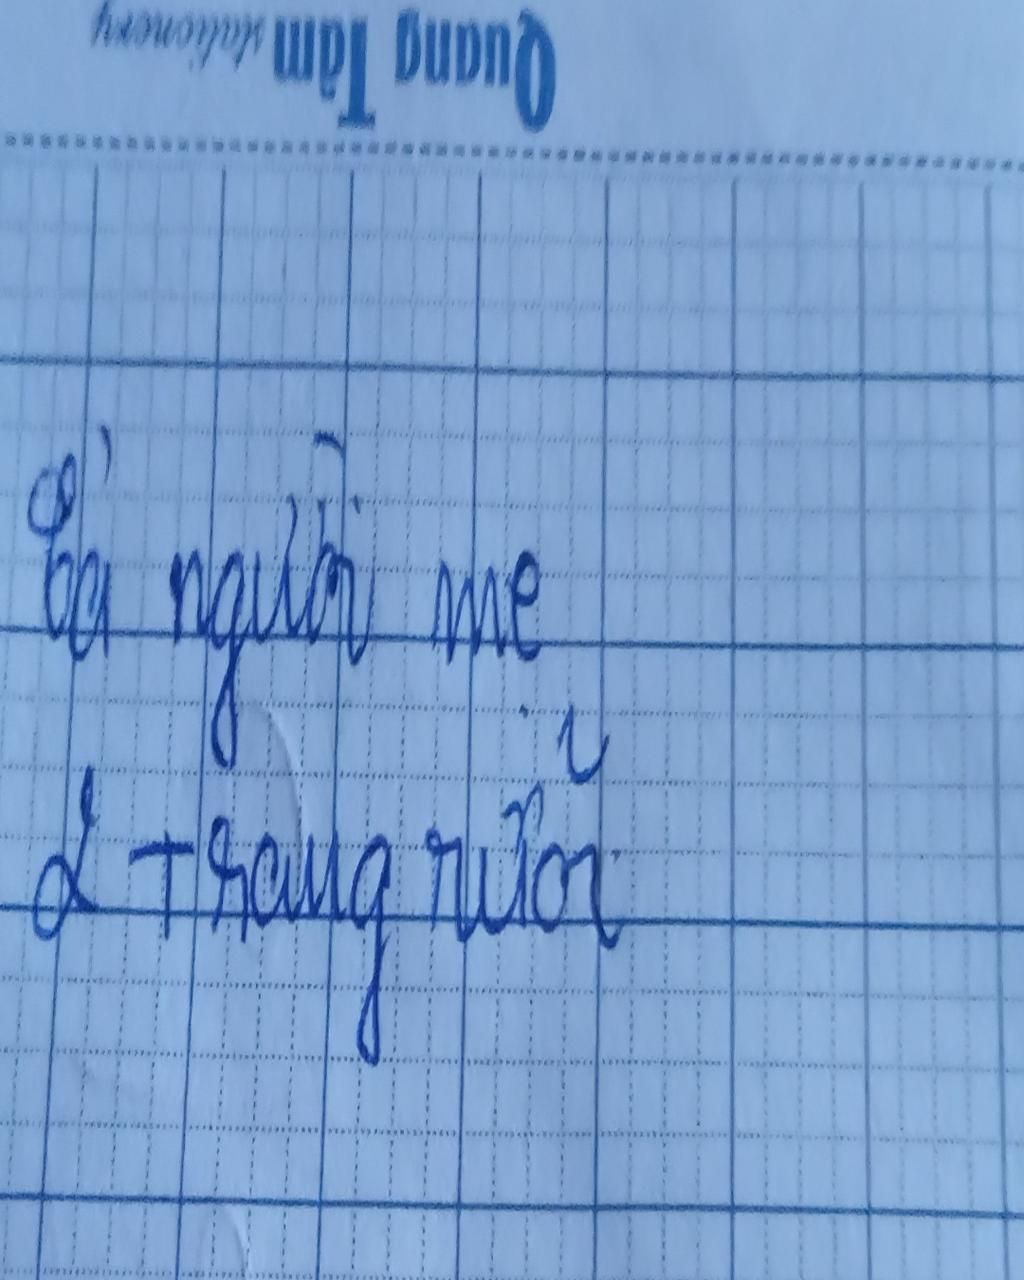 Quang Tâm stationery
Bà người mẹ
2 trang rưỡi